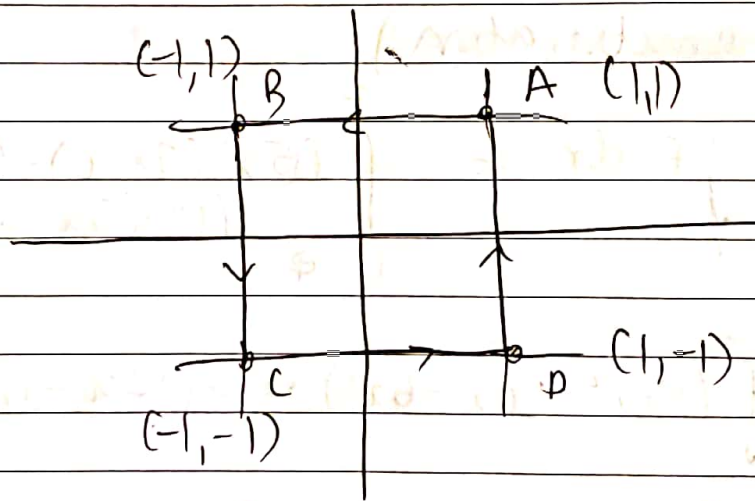 (-1,1)
B
A (1,1)
C
D (1,-1)
(-1,-1)